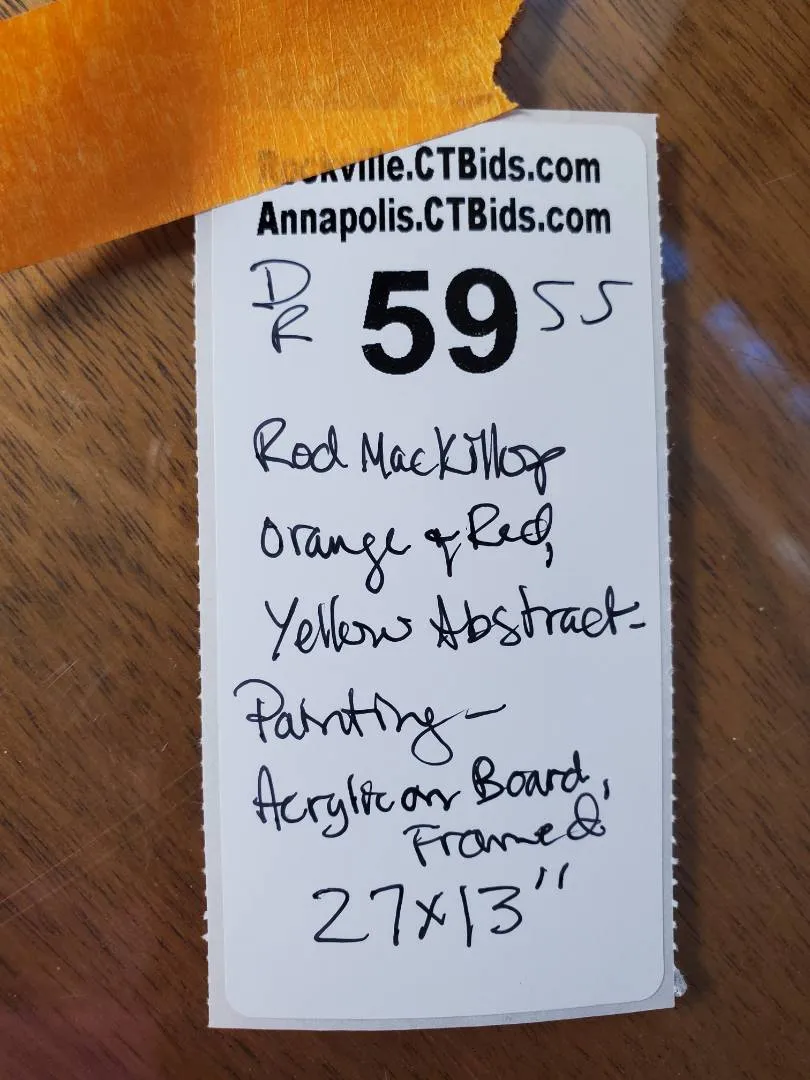 Rockville.CTBids.com
Annapolis.CTBids.com
DR 59 55
Rod MacKillop
Orange & Red,
Yellow Abstract-
Painting-
Acrylic on Board,
Framed
27x13"